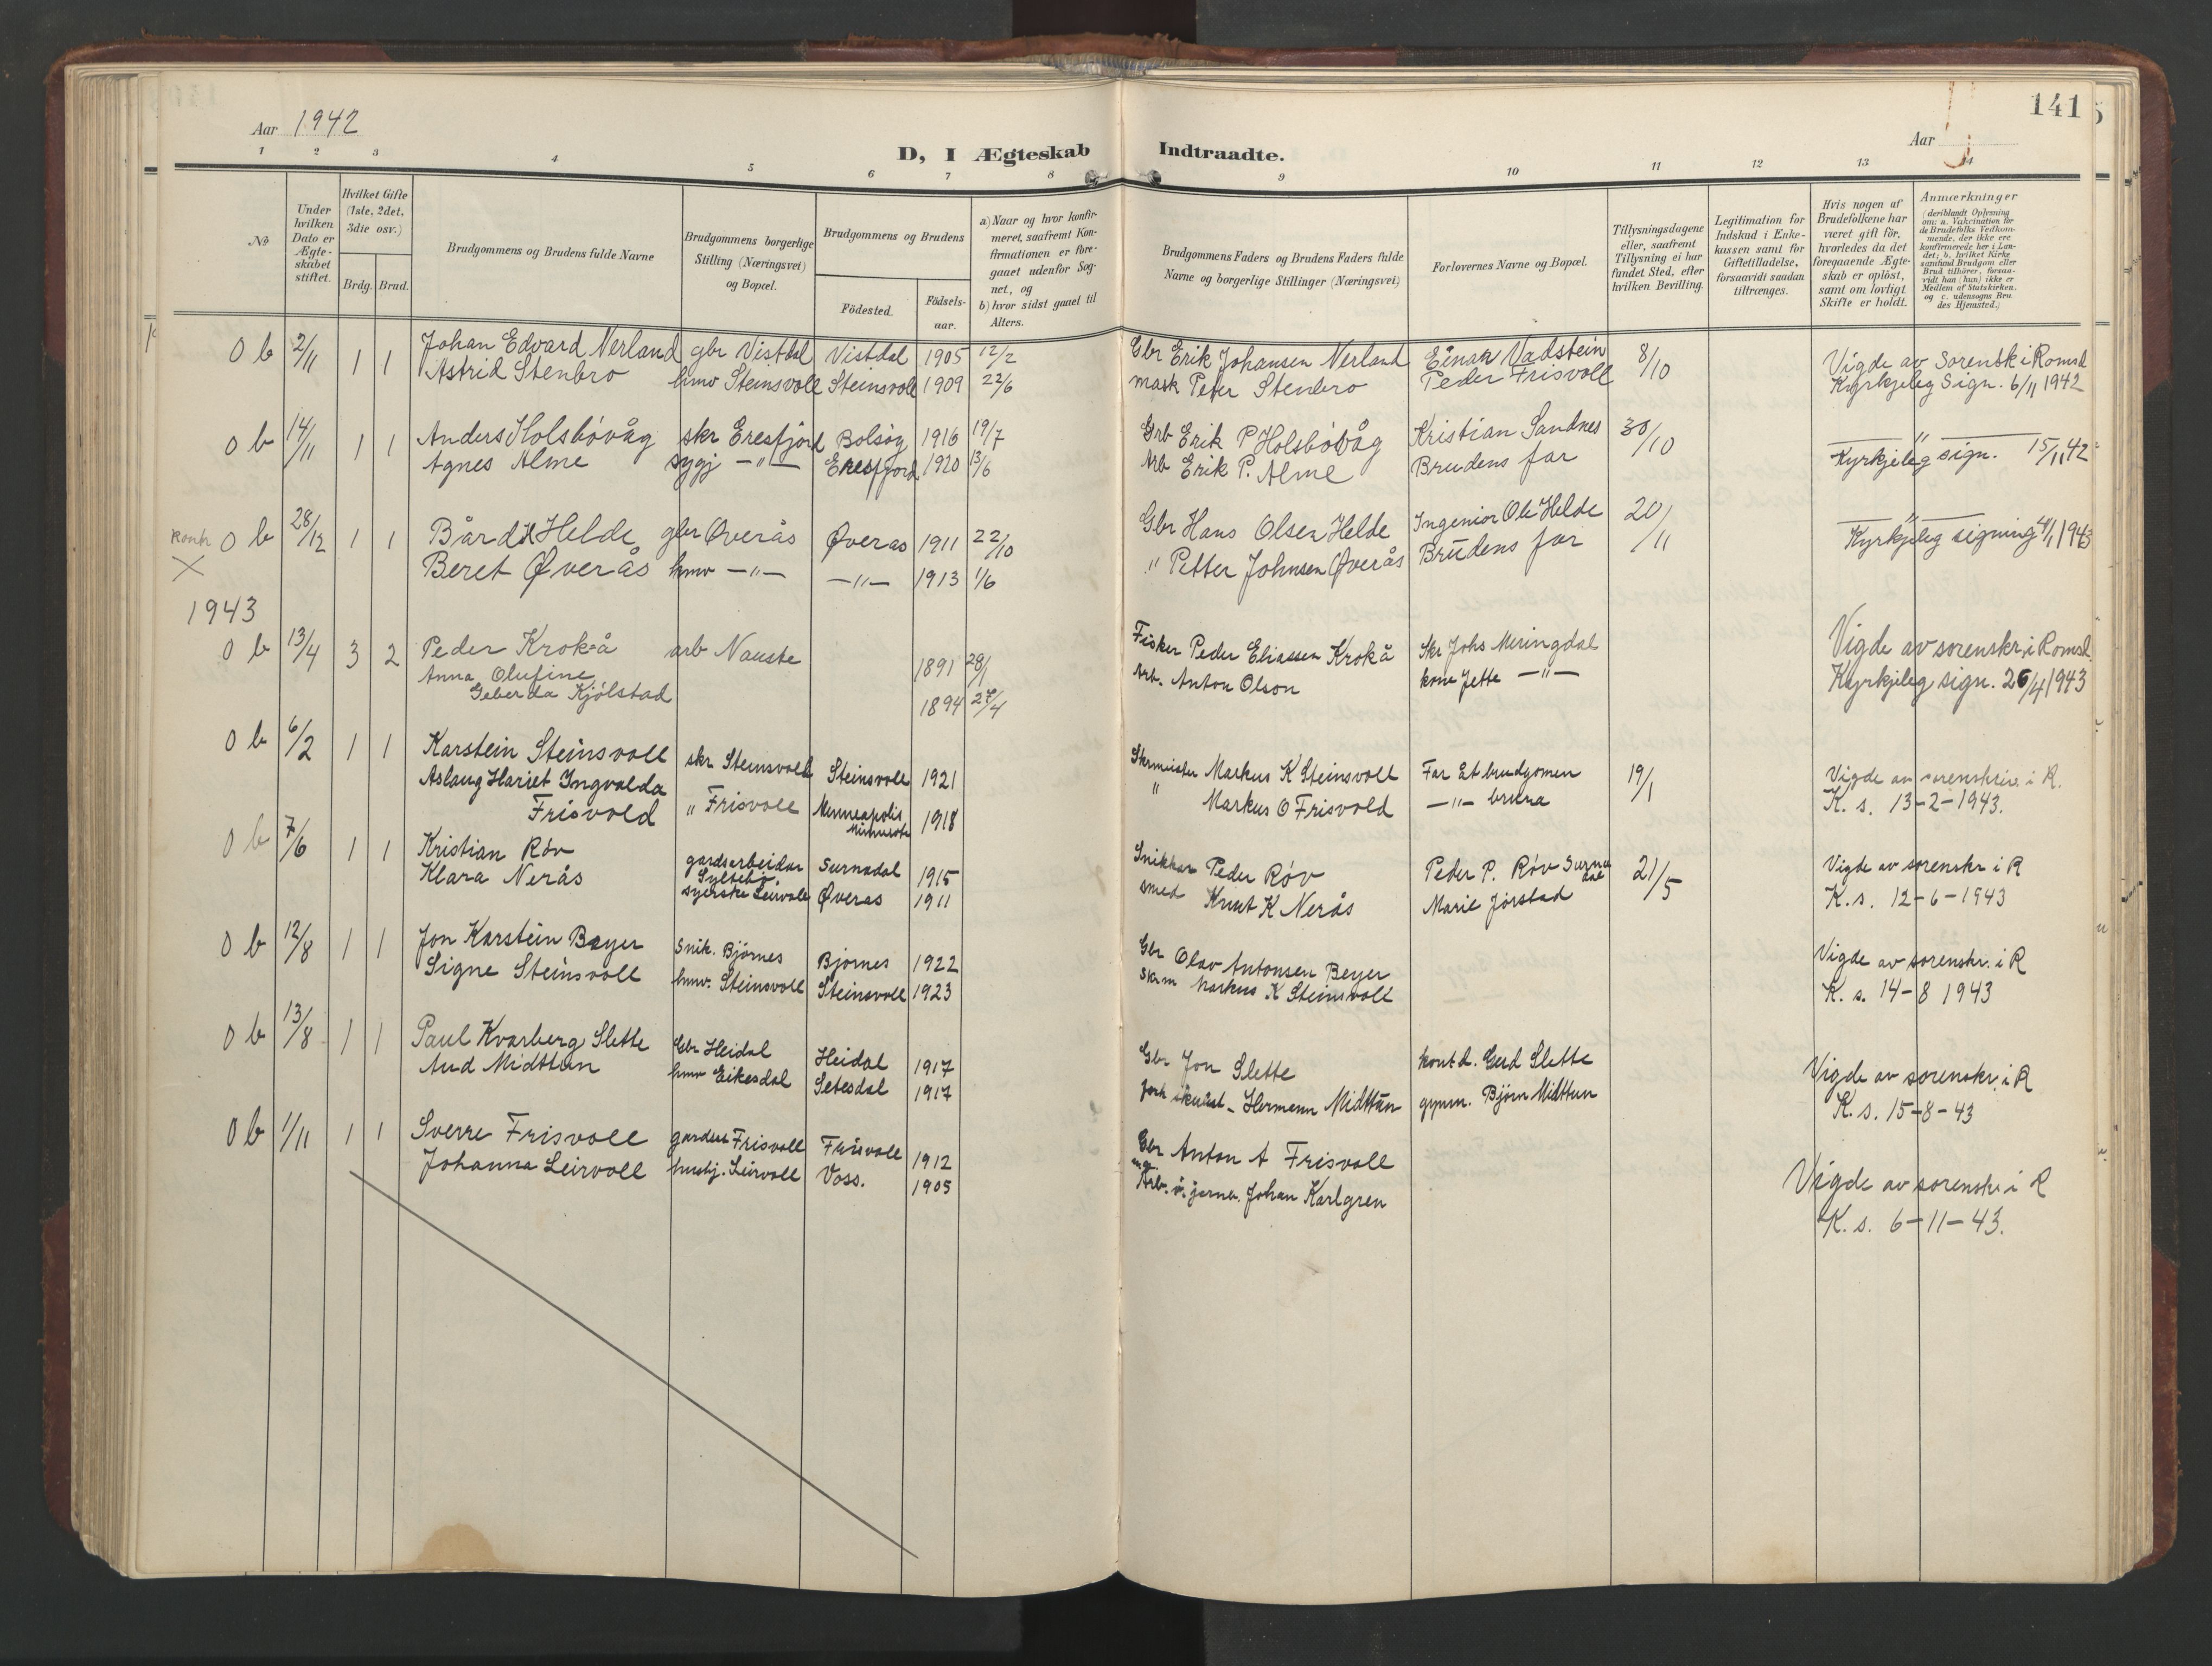 Aar 1942
D, I Ægteskab
1 2 3 4 5 6 7 8
№
Under hvilken Dato er Ægteskabet stiftet.
Hvilket Gifte (1ste, 2det, 3die osv.)
Brdg. Brud.
Brudgommens og Brudens fulde Navne
Brudgommens borgerlige Stilling (Næringsvei) og Bopæl.
Brudgommens og Brudens
Födested.
Födsels-aar.
a) Naar og hvor konfir-
meret, saafremt Kon-
firmationen er fore-
gaaet udenfor Sog-
net, og
b) hvor sidst gaaet til
Alters.
0 b 2/11 1 1 Johan Edvard Nerland gbr Vistdal Vistdal 1905 12/2
Astrid Stenbro hmv Steinsvoll Steinsvoll 1909 22/6
0 b 14/11 1 1 Anders Holsbövåg skr Eresfjord Bolsöy 1916 19/7
Agnes Alme sygj —"— Eresfjord 1920 13/6
0 b 28/12 1 1 Bård H Helde gbr Øverås Øverås 1911 22/10
Beret Øverås hmv —"— —"— 1913 1/6
1943
0 b 13/4 3 2 Peder Krokå arb Nauste 1891 28/1
Anna Olufine
Geberda Kjölstad 1894 27/4
0 b 6/2 1 1 Karstein Steinsvoll skr Steinsvoll Steinsvoll 1921
Aslaug Hariet Ingvalda
Frisvold " Frisvoll Minneapolis Minnesota 1918
0 b 7/6 1 1 Kristian Röv gardsarbeidar Syltebö Surnadal 1915
Klara Nerås syerske Leirvoll Øveras 1911
0 b 12/8 1 1 Jon Karstein Bøyer Snik. Björnes Björnes 1922
Signe Steinsvoll hmv. Steinsvoll Steinsvoll 1923
0 b 13/8 1 1 Paul Kvarberg Slette Gbr Heidal Heidal 1917
Aud Midttun hmv Eikesdal Setesdal 1917
0 b 1/11 1 1 Sverre Frisvoll Frisvoll Frisvoll 1912
Johanna Leirvoll hushj. Leirvoll Voss. 1905
141
Aar
Indtraadte.
9 10 11 12 13 14
Brudgommens Faders og Brudens Faders fulde
Navne og borgerlige Stillinger (Næringsvei)
Forlovernes Navne og Bopæl.
Tillysningsdagene
eller, saafremt
Tillysning ei har
fundet Sted, efter
hvilken Bevilling.
Legitimation for
Indskud i Enke-
kassen samt for
Giftetilladelse,
forsaavidt saadan
tiltrænges.
Hvis nogen af
Brudefolkene har
været gift för,
hvorledes da det
foregaaende Ægte-
skab er oplöst,
samt om lovligt
Skifte er holdt.
Anmærkninger
(deriblandt Oplysning
om: a. Vakcination for
de Brudefolks Vedkom-
mende, der ikke ere
konfirmerede her i Lan-
det; b. hvilket Kirke
samfund Brudgom eller
Brud tilhörer, forsaa-
vidt han (hun) ikke er
Medlem af Statskirken.
og c. udensogns Bru
des Hjemsted.)
Gbr Erik Johansen Nerland Einar Vadstein 8/10 Vigde av Sorensk i Romsd
mask Peter Stenbro Peder Frisvoll Kyrkjeleg Sign. 6/11 1942
Grb Erik P Holsbövåg Kristian Sandnes 30/10 — " —
Arb Erik P. Alme Brudens far Kyrkjeleg sign. 15/11 42
Gbr Hans Olsen Helde Ingeniør Ole Helde 20/11 — " —
" Petter Johnsen Øverås Brudens far Kyrkjeleg signing 4/1 1943
Fisker Peder Eliassen Krokå Skr Johs Meringdal Vigde av sorenskr. i Romsd.
Arb. Anton Olson kone Jette —"— Kyrkjeleg sign. 26/4 1943
Markus K Steinsvoll Far åt brudgomen 19/1 Vigde av sorenskriv. i R.
" Markus O Frisvold —"— brura K. s. 13-2-1943.
Snikkar Peder Röv Peder P. Röv Surnadal 21/5 Vigde av sorenskr i R
smed Knut K Nerås Marie Jörstad K. s. 12-6-1943
Gbr Olav Antonsen Beyer Vigde av sorenskr. i R
Skrm Markus K Steinsvoll K. s. 14-8 1943
Gbr Jon Slette kontd. Gud Slette Vigde av sorenskr. i R
Hermann Midttun gymn. Björn Midttun K. s. 15-8-43
Gbr Anton A Frisvoll Vigde av sorenskr i R
Arb. Johan Karlgren K. s. 6-11-43.